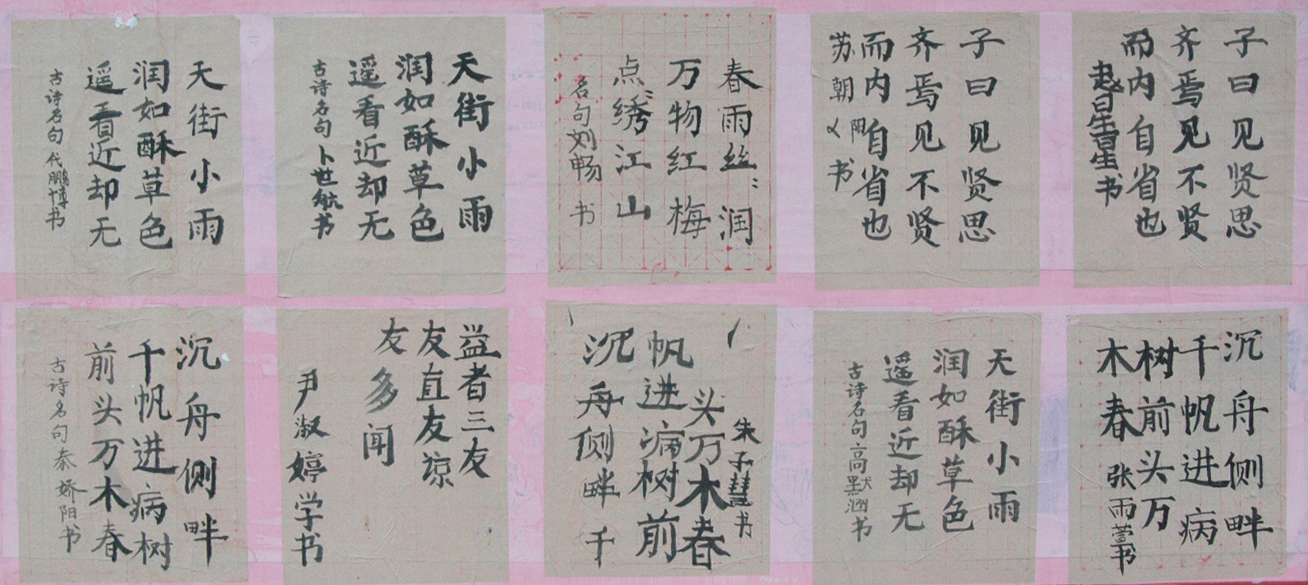 天街小雨
润如酥草色
遥看近却无
古诗名句 代鹏博书
天街小雨
润如酥草色
遥看近却无
古诗名句卜世航书
春雨丝:润
万物红梅
点:绣江山
名句刘畅 书
子曰见贤思
齐焉见不贤
而内自省也
苏朝阳书
子曰见贤思
齐焉见不贤
而内自省也
书
沉舟侧畔
千帆进病树
前头万木春
古诗名句 娇阳书
益者三友
友直友凉
友多闻
尹淑婷学书
沉舟侧畔千
帆进病树前
头万木春
朱子慧书
天街小雨
润如酥草色
遥看近却无
古诗名句高默涵书
沉舟侧畔
千帆进病
树前头万
木春 张雨萱书